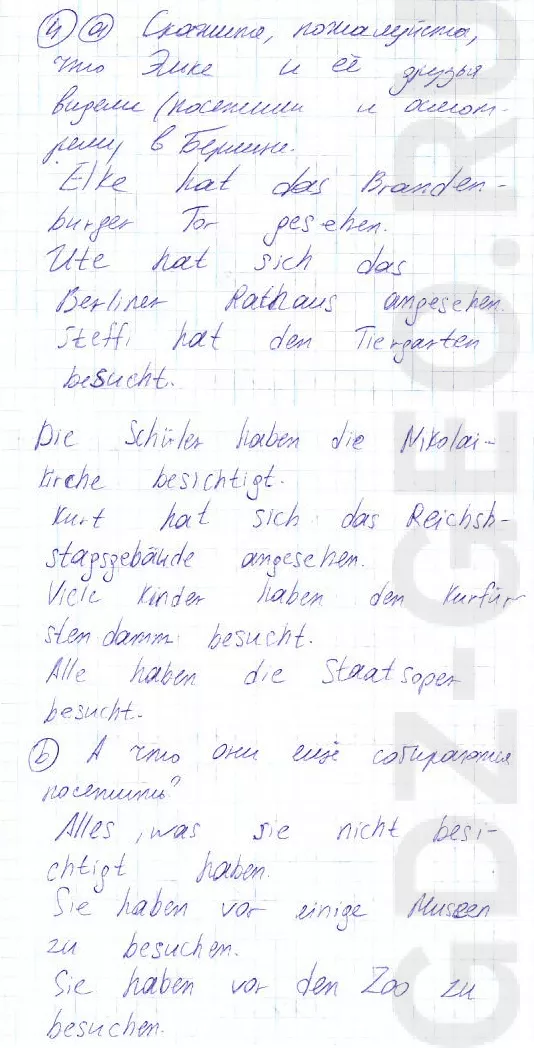 4) a) Скажите, пожалуйста,
что Элке и её друзья
видели (посетили и осмот-
рели) в Берлине.
Elke hat das Branden-
burger Tor gesehen.
Ute hat sich das
Berliner Rathaus angesehen.
Steffi hat den Tiergarten
besucht.
Die Schüler haben die Nikolai-
kirche besichtigt.
Kurt hat sich das Reichsh-
stagsgebäude angesehen.
Viele Kinder haben den Kurfür
sten damm besucht.
Alle haben die Staatsoper
besucht.
b) А что они ещё собираются
посетить?
Alles, was sie nicht besi-
chtigt haben.
Sie haben vor einige Museen
zu besuchen.
Sie haben vor den Zoo zu
besuchen.
GDZ-GEO.RU